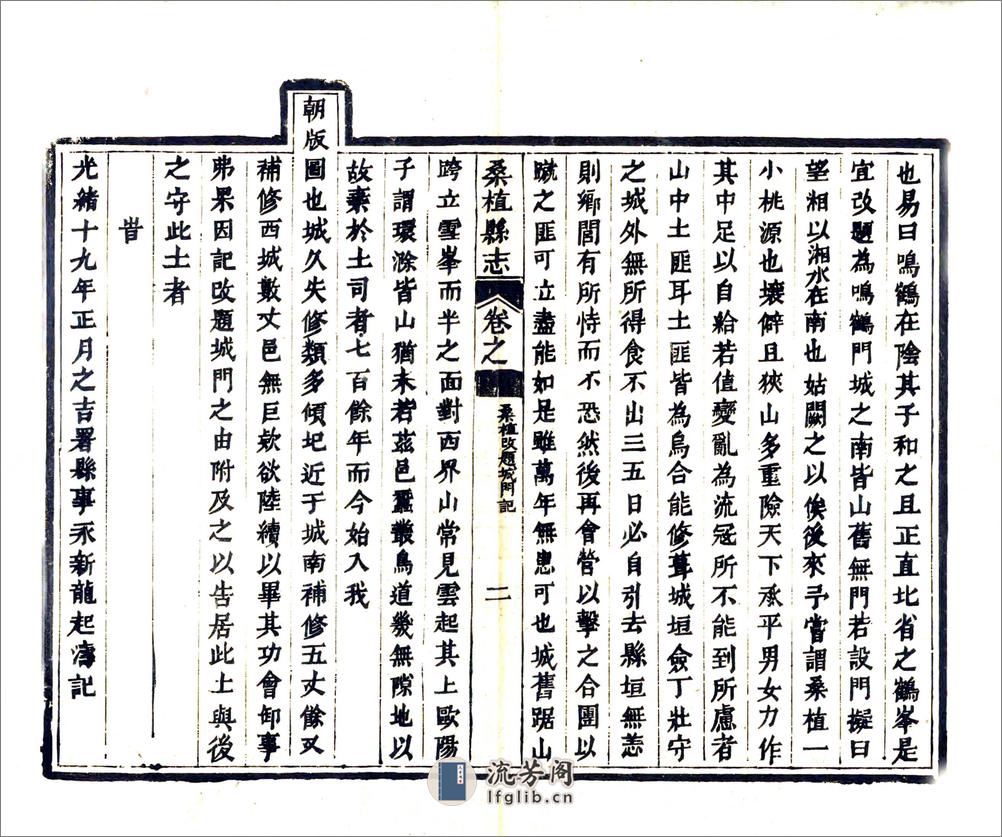 也易曰鳴鶴在陰其子和之且正直比省之鶴峯是
宜改題為鳴鶴門城之南皆山舊無門若設門擬曰
望湘以湘水在南也姑闕之以俟後來予嘗謂桑植一
小桃源也壤僻且狹山多重險天下承平男女力作
其中足以自給若值變亂為流寇所不能到所慮者
山中土匪耳土匪皆為烏合能修葺城垣僉丁壯守
之城外無所得食不出三五日必自引去縣垣無恙
則鄉閭有所恃而不恐然後再會營以擊之合團以
蹴之匪可立盡能如是雖萬年無患可也城舊踞山
桑植縣志 卷之 桑植改題城門記 二
跨立雲峯而半之面對西界山常見雲起其上歐陽
子謂環滁皆山猶未若茲邑蠶叢鳥道幾無隙地以
故棄於土司者七百餘年而今始入我
朝版圖也城久失修類多傾圮近于城南補修五丈餘又
補修西城數丈邑無巨欵欲陸續以畢其功會卸事
弗果因記改題城門之由附及之以告居此土與後
之守此土者
旹
光緒十九年正月之吉署縣事永新龍起濤記
流芳阁
lfglib.cn